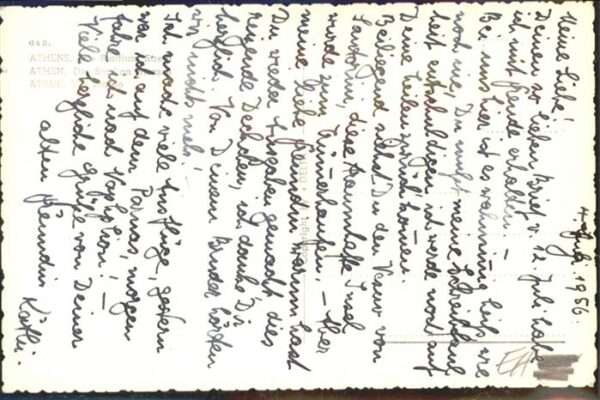 Juli 1956.
Meine Liebe!
Deinen so lieben Brief v. 12. Juli habe
ich mit Freude erhalten. –
Bei uns hier ist es wahnsinnig heiß wie
noch nie, Du mußt meine Schreibfaul
heit entschuldigen, ich werde noch auf
Deine Zeilen zurück kommen.
Beiliegend siehst Du den Vesuv von
Santorin, diese traumhafte Insel
wurde zum Trümmerhaufen. – Aber
meine liebe Freundin warum hast
Du wieder Ausgaben gemacht dies
reizende Deckchen, ich danke Dir
herzlich. Von Deinem Bruder hörten
wir nichts mehr.
Ich mache viele Ausflüge, gestern
war ich auf dem Parnas, morgen
fahre ich nach Nauplion! –
Viele herzliche Grüße von Deiner
alten Freundin
ATHENS,
ATHEN,